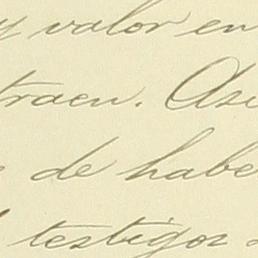 y valor en
traen. Asi
de habe
testigos